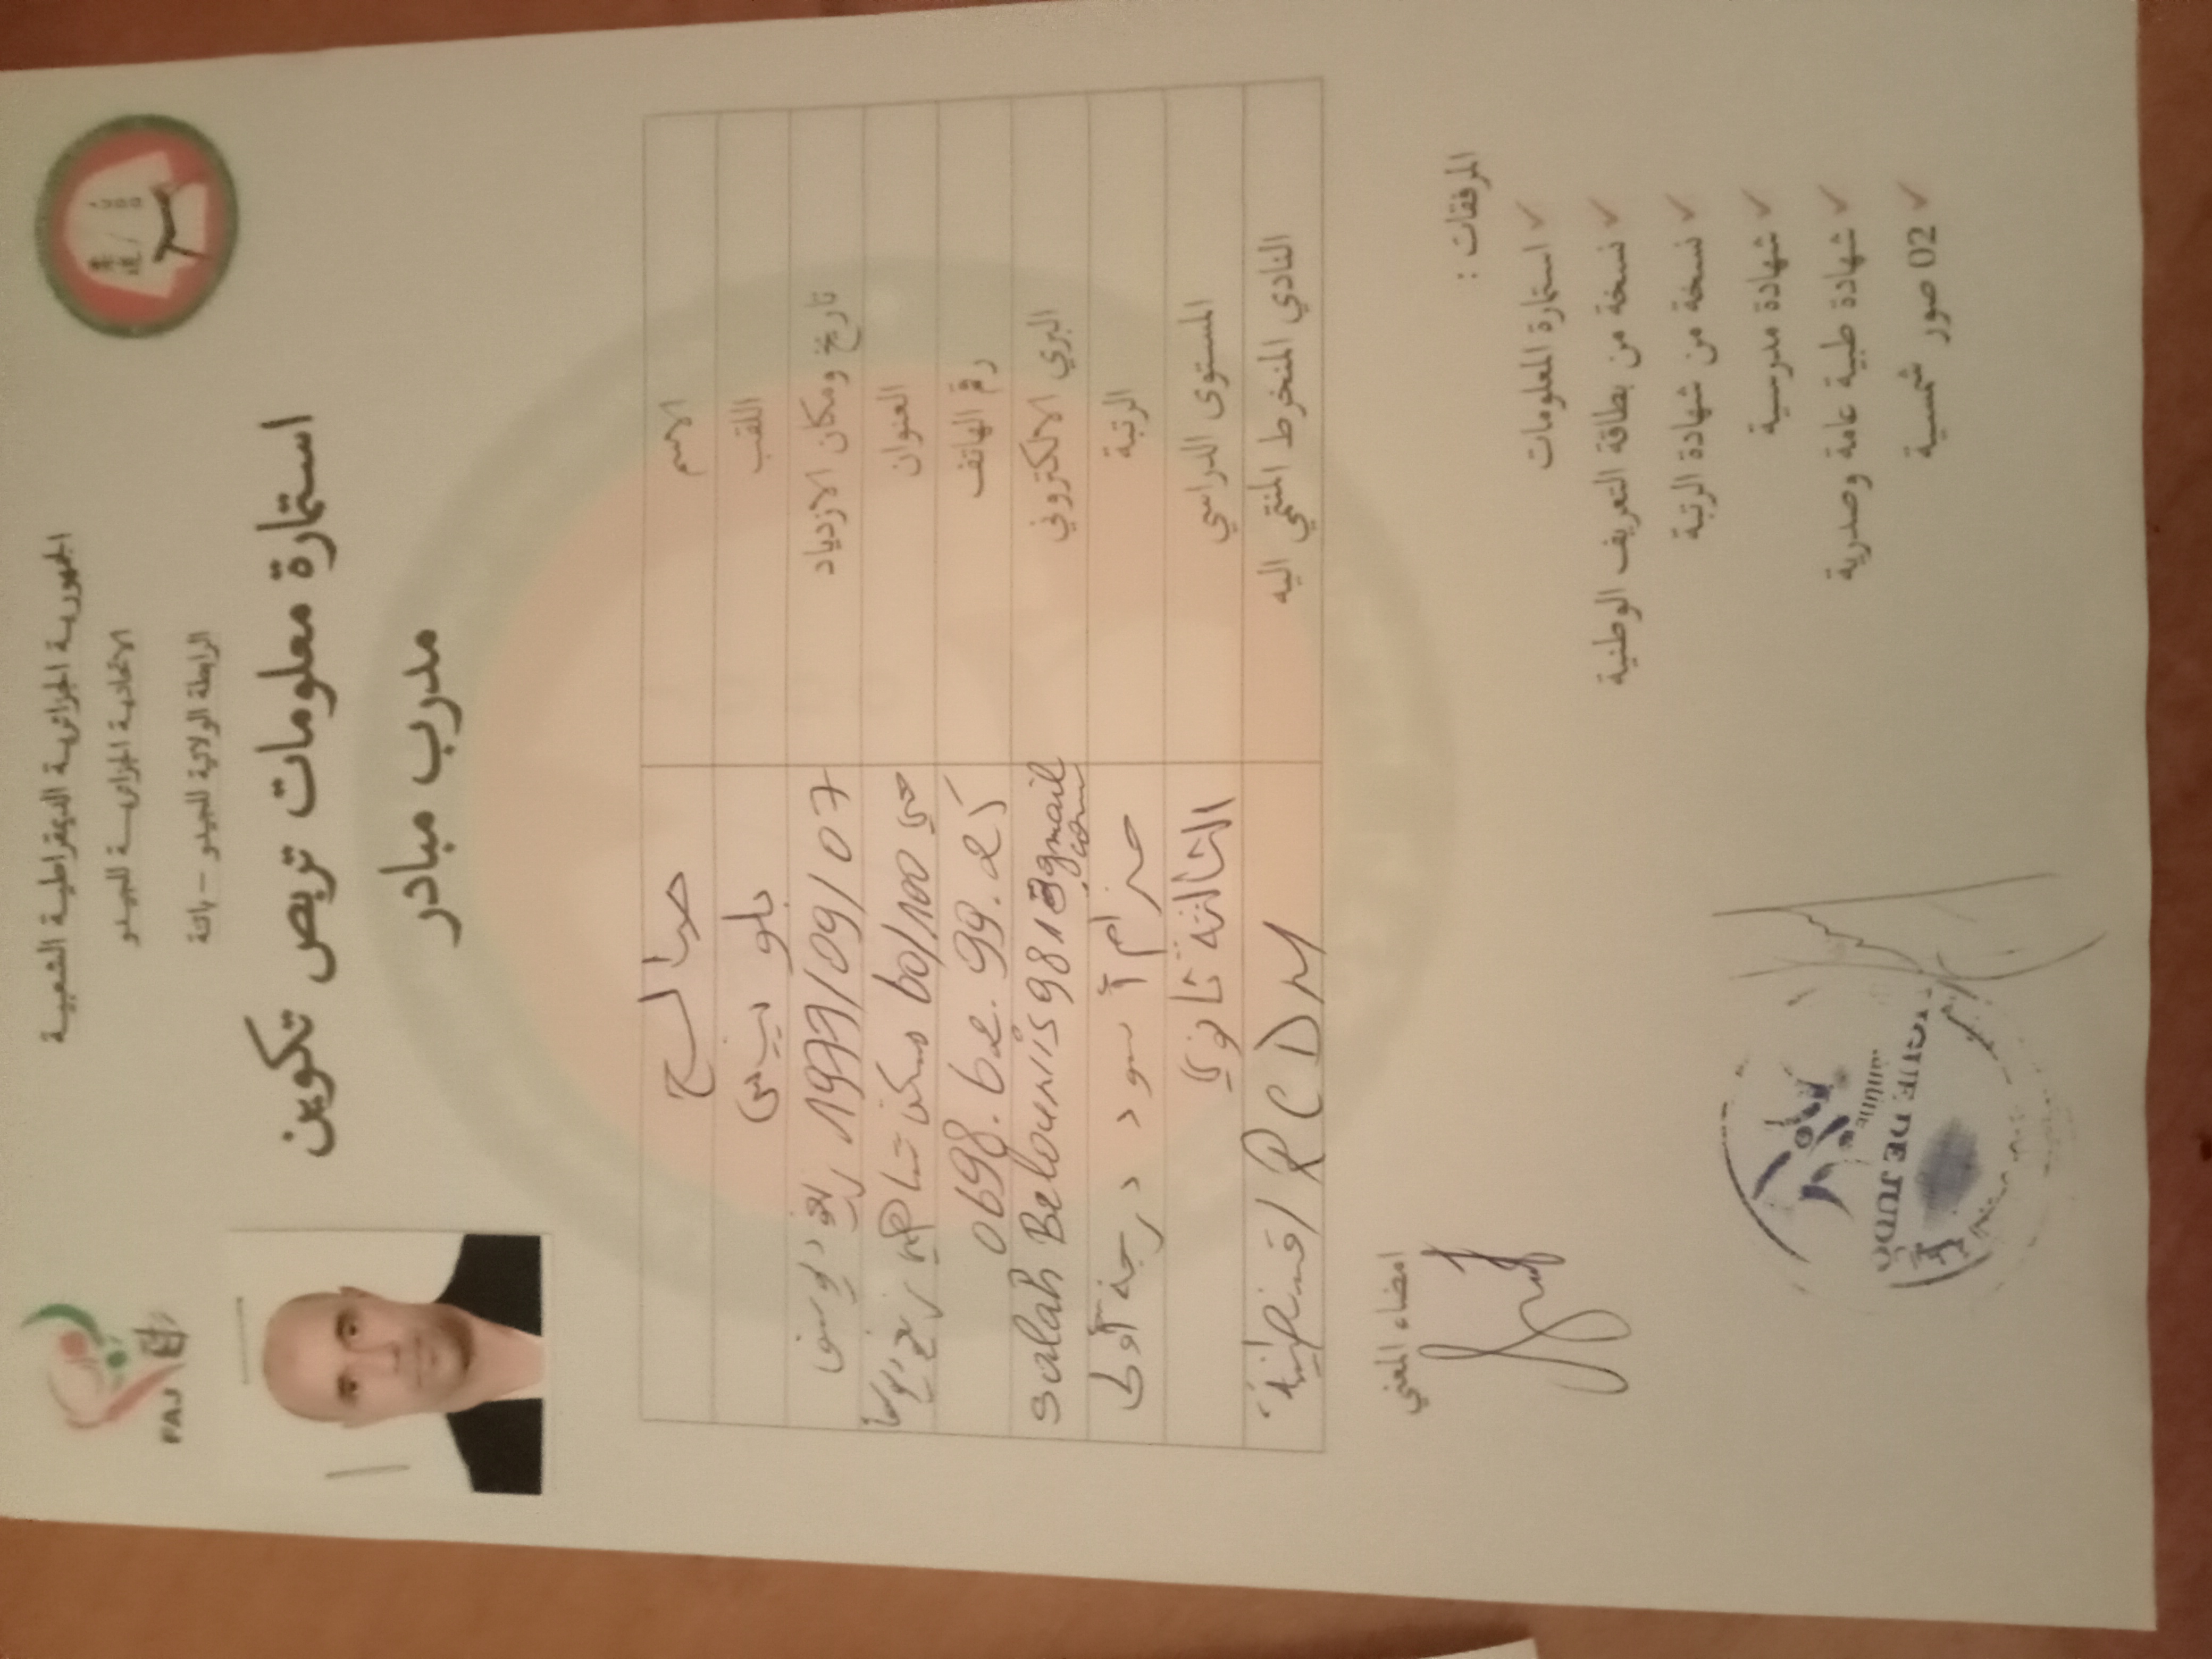 الجمهورية الجزائرية الديمقراطية الشعبية
الاتحادية الجزائرية للجيدو
الرابطة الولائية للجيدو – باتنة
FAJ
استمارة معلومات تربص تكوين
مدرب مبادر
الاسم صالح
اللقب بلونيس
تاريخ ومكان الازدياد 07/09/1979
العنوان حي 100/60 مسكن
رقم الهاتف 0698.62.99.25
البري الالكتروني Salah Belounis 981@gmail.com
الرتبة حزام أسود درجة أولى
المستوى الدراسي الثالثة ثانوي
النادي المنخرط المنتمي اليه RCDM /قسنطينة
المرفقات :
استمارة المعلومات
نسخة من بطاقة التعريف الوطنية
نسخة من شهادة الرتبة
شهادة مدرسية
شهادة طبية عامة وصدرية
02 صور شمسية
امضاء المعني